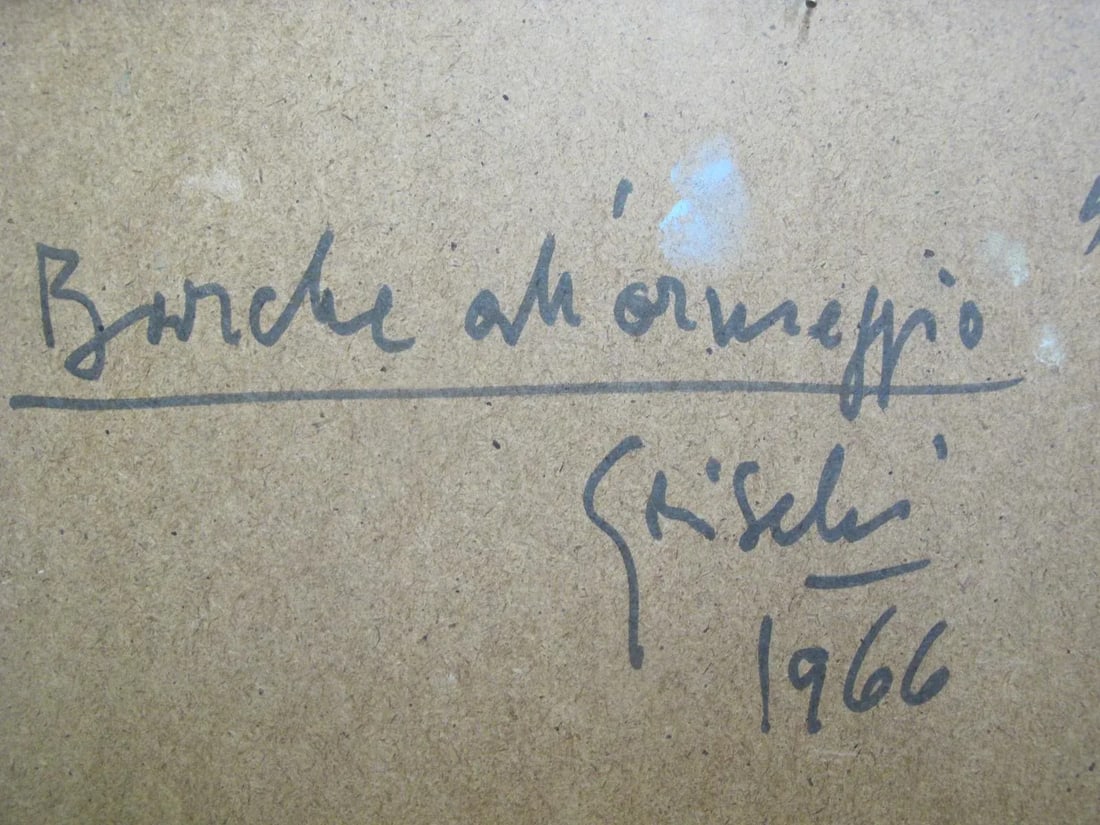 Barche all'ormeggio
Griselli
1966